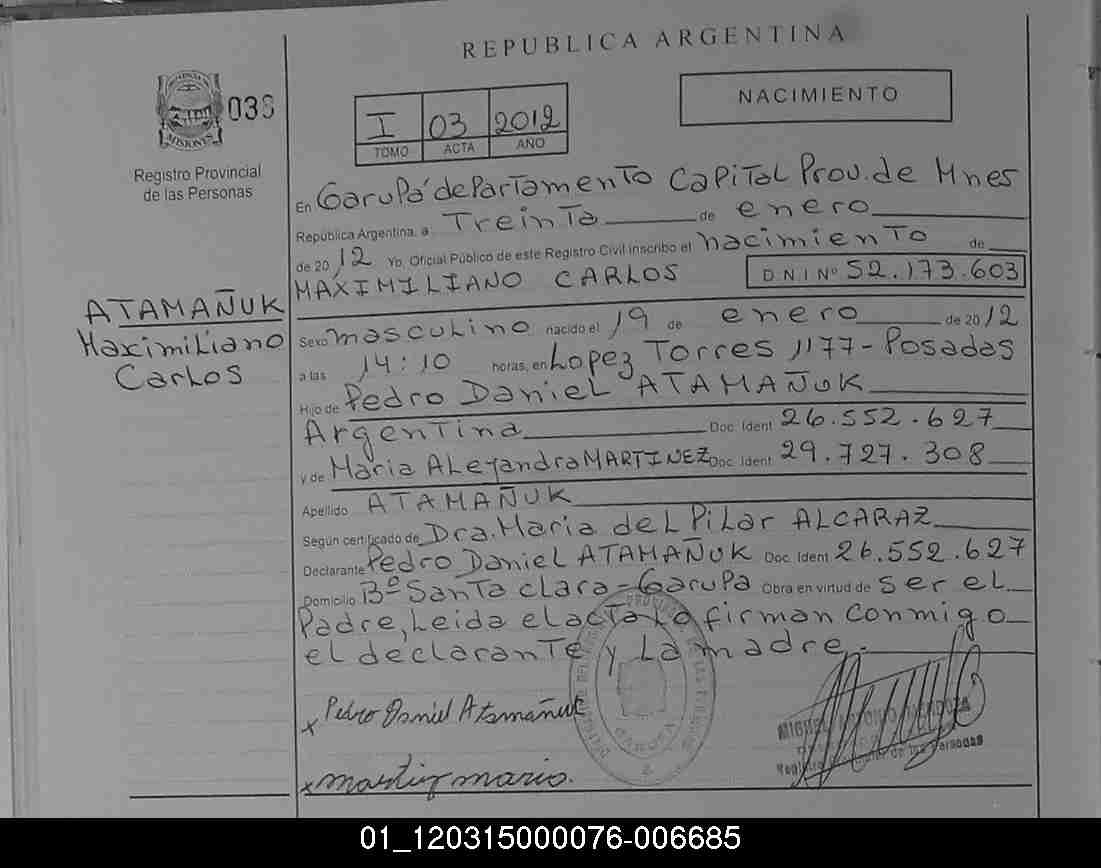 REPUBLICA ARGENTINA
PROVINCIA DE
MISIONES
036
Registro Provincial
de las Personas
I 03 2012
TOMO ACTA AÑO
NACIMIENTO
En Garupá departamento Capital Prov. de Mnes
República Argentina, a Treinta de enero
de 2012 Yo, Oficial Público de este Registro Civil inscribo el nacimiento de
MAXIMILIANO CARLOS D.N.I Nº 52.173.603
ATAMAÑUK
Maximiliano
Carlos
Sexo masculino nacido el 19 de enero de 2012
a las 14:10 horas, en Lopez Torres 1177-Posadas
Hijo de Pedro Daniel ATAMAÑUK
Argentina Doc. Ident 26.552.627
y de Maria Alejandra MARTINEZ Doc. Ident 29.727.308
Apellido ATAMAÑUK
Según certificado de Dra. Maria del Pilar ALCARAZ
Declarante Pedro Daniel ATAMAÑUK Doc. Ident 26.552.627
Domicilio Bº Santa Clara-Garupa Obra en virtud de ser el
Padre, Leida el acta lo firman conmigo
el declarante y La madre.-
x Pedro Daniel Atamañuk
MIGUEL ANTONIO MENDOZA
Registro Provincial de las Personas
x martinez maria.
01_120315000076-006685